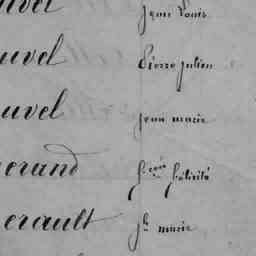 uvel Jean Louis
uvel Pierre Julien
uvel Jean marie
erand fçoise félicité
erault Jh marie